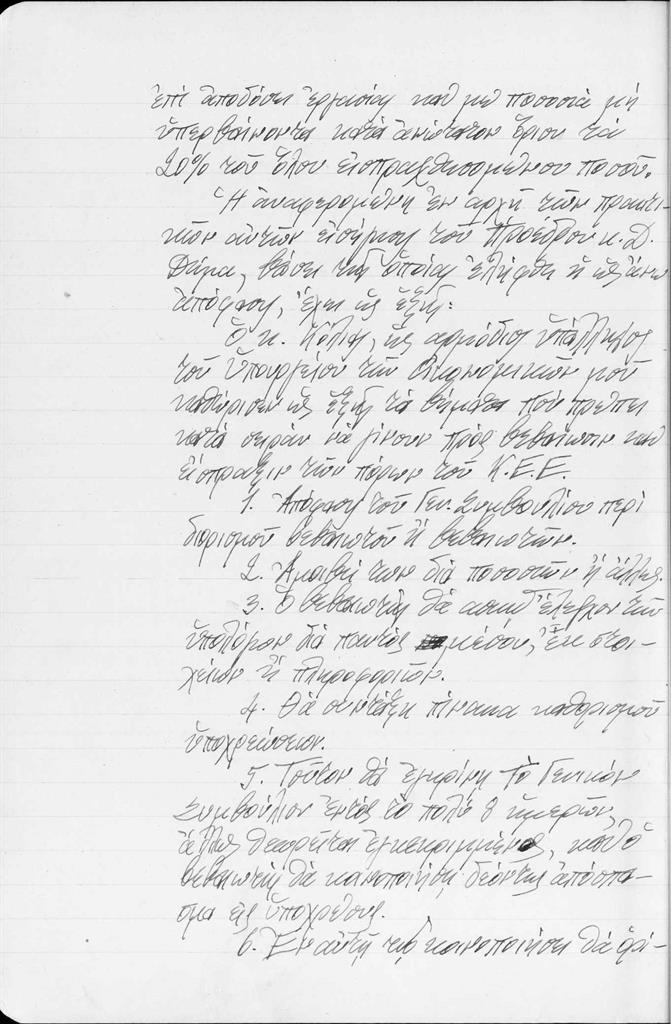 ἐπὶ ἀποδόσει ἐργασίας καὶ μὲ ποσοστὰ μὴ
ὑπερβαίνοντα κατὰ ἀνώτατον ὅριον τὰ
20% τοῦ ὅλου εἰσπραχθησομένου ποσοῦ.
Ἡ ἀναφερομένη ἐν ἀρχῇ τῶν πρακτι-
κῶν αὐτῶν εἰσήγησις τοῦ Προέδρου κ. Δ.
Δήμα, βάσει τῆς ὁποίας ἐλήφθη ἡ ὡς ἄνω
ἀπόφασις, ἔχει ὡς ἑξῆς:
Ὁ κ. Κόλιας, ὡς ἁρμόδιος ὑπάλληλος
τοῦ Ὑπουργείου τῶν Οἰκονομικῶν μοῦ
καθώρισεν ὡς ἑξῆς τὰ θέματα ποὺ πρέπει
κατὰ σειρὰν νὰ γίνουν πρὸς βεβαίωσιν καὶ
εἴσπραξιν τῶν πόρων τοῦ Κ.Ε.Ε.
1. Ἀπόφασις τοῦ Γεν. Συμβουλίου περὶ
διορισμοῦ βεβαιωτοῦ ἢ βεβαιωτῶν.
2. Ἀμοιβὴ των διὰ ποσοστῶν ἢ ἄλλως.
3. Ὁ βεβαιωτὴς θὰ ἀσκῇ ἔλεγχον τῶν
ὑπολόγων διὰ παντὸς μέσου, ἐκ στοι-
χείων ἢ πληροφοριῶν.
4. Θὰ συντάξῃ πίνακα καθορισμοῦ
ὑποχρεώσεων.
5. Τοῦτον θὰ ἐγκρίνῃ τὸ Γενικὸν
Συμβούλιον ἐντὸς τὸ πολὺ 8 ἡμερῶν,
ἄλλως θεωρεῖται ἐγκεκριμμένος, καὶ ὁ
βεβαιωτὴς θὰ κοινοποιήσῃ δεόντως ἀπόσπα-
σμα εἰς ὑποχρέους.
6. Ἐν αὐτῇ τῇ κοινοποιήσει θὰ ὁρί-